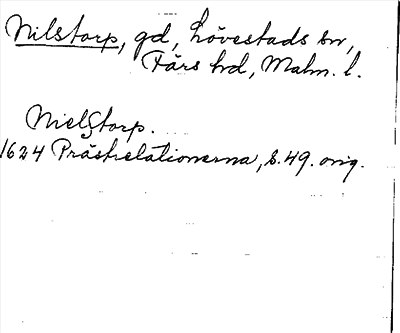 Nilstorp, gd, Lövestads sn,
Färs hd, Malm. l.
Nielstorp.
1624 Prästrelationerna, s. 49. orig.